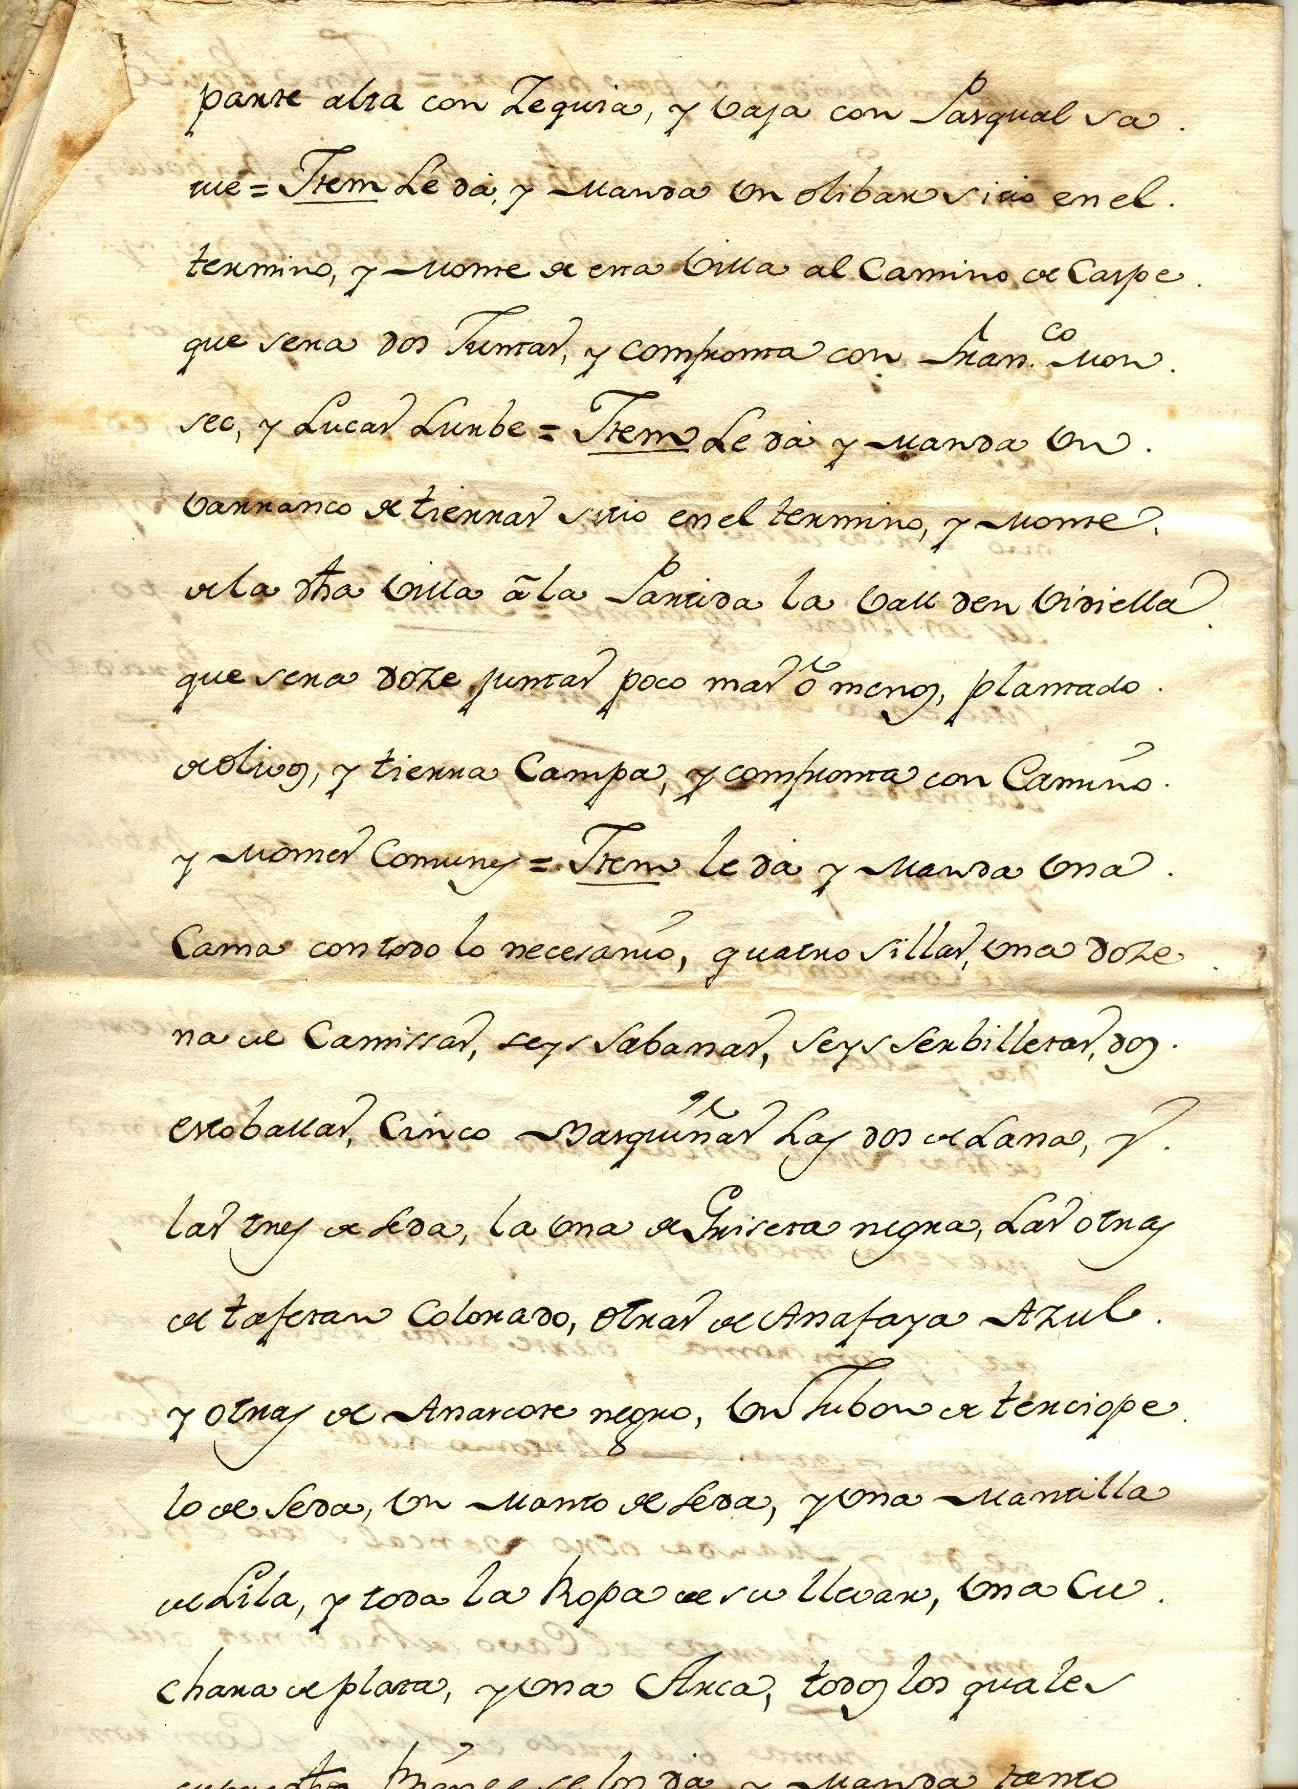 parte alta con Zequia, y baja con Pasqual Sa
rue = Item Le dá, y Manda Un olibar sitio en el
termino, y Monte de esta Villa al Camino de Caspe
que sera dos Juntas, y confronta con Fran.co Mon
sec, y Lucas Lurbe = Item Le dá y Manda Un
barranco de tierras sitio en el termino, y Monte
de la dha Villa â la Partida la Vall den Vidiella
que sera doze juntas poco mas ô menos, plantado
de olivos, y tierra Campa, y confronta con Camino
y Montes Comunes = Item le dá y Manda Una
Cama con todo lo necesario, quatro sillas, una doze
na de Camissas, seys Sabanas, seys Serbilletas, dos
escoballas, Cinco Basquiñas Las dos de Lana, y
las tres de Seda, la Una de Griseta negra, Las otras
de tafetan Colorado, otras de Anafaya Azul
y otras de Anascote negro, Un Jubon de terciope
lo de Seda, Un Manto de Seda, y Una Mantilla
de Lila, y toda la Ropa de su llevar, Una Cu
chara de plata, y Una Arca, todos los quales
dhos bienes se los dá y Manda tanto